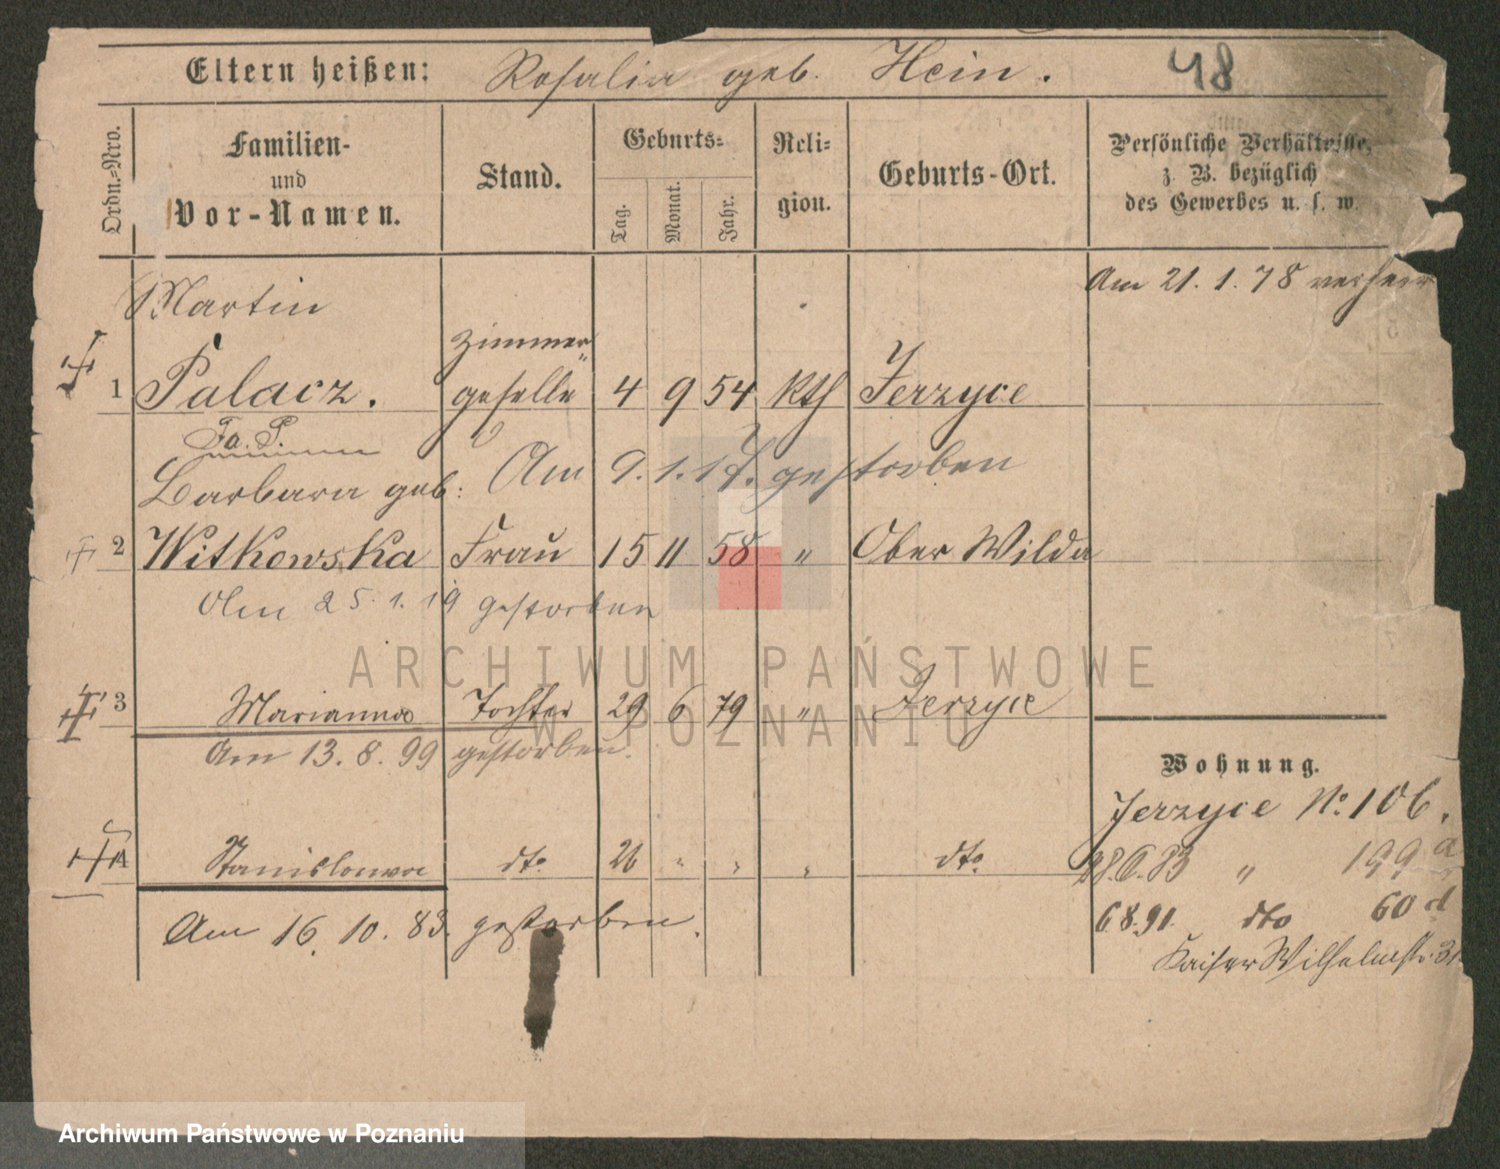 Eltern heißen: Rosalia geb. Hein. 48
Ordn.-Nro. Familien- und Vor-Namen. Stand. Geburts- Tag. Monat. Jahr. Religion. Geburts-Ort. Persönliche Verhältnisse, z. B. bezüglich des Gewerbes u. s. w.
Martin Am 21. 1. 78 verheir
Zimmer
1 Palacz. geselle 4 9 54 kth Jerzyce
Fa. P.
Am 9. 1. 17. gestorben
Barbara geb:
2 Witkowska Frau 15 11 58 " Ober Wilda
Am 25. 1. 19 gestorben
ARCHIWUM PAŃSTWOWE
3 Marianna Tochter 29 6 79 " Jerzyce
W POZNANIU
Am 13. 8. 99 gestorben.
Wohnung.
Jerzyce No 106.
4 Stanislawa dto 26 " " " dto
28.6.83 " 199 a
6 8. 91. dto 60 d
Am 16. 10. 83. gestorben.
Kaiser Wilhelmstr. 31
Archiwum Państwowe w Poznaniu